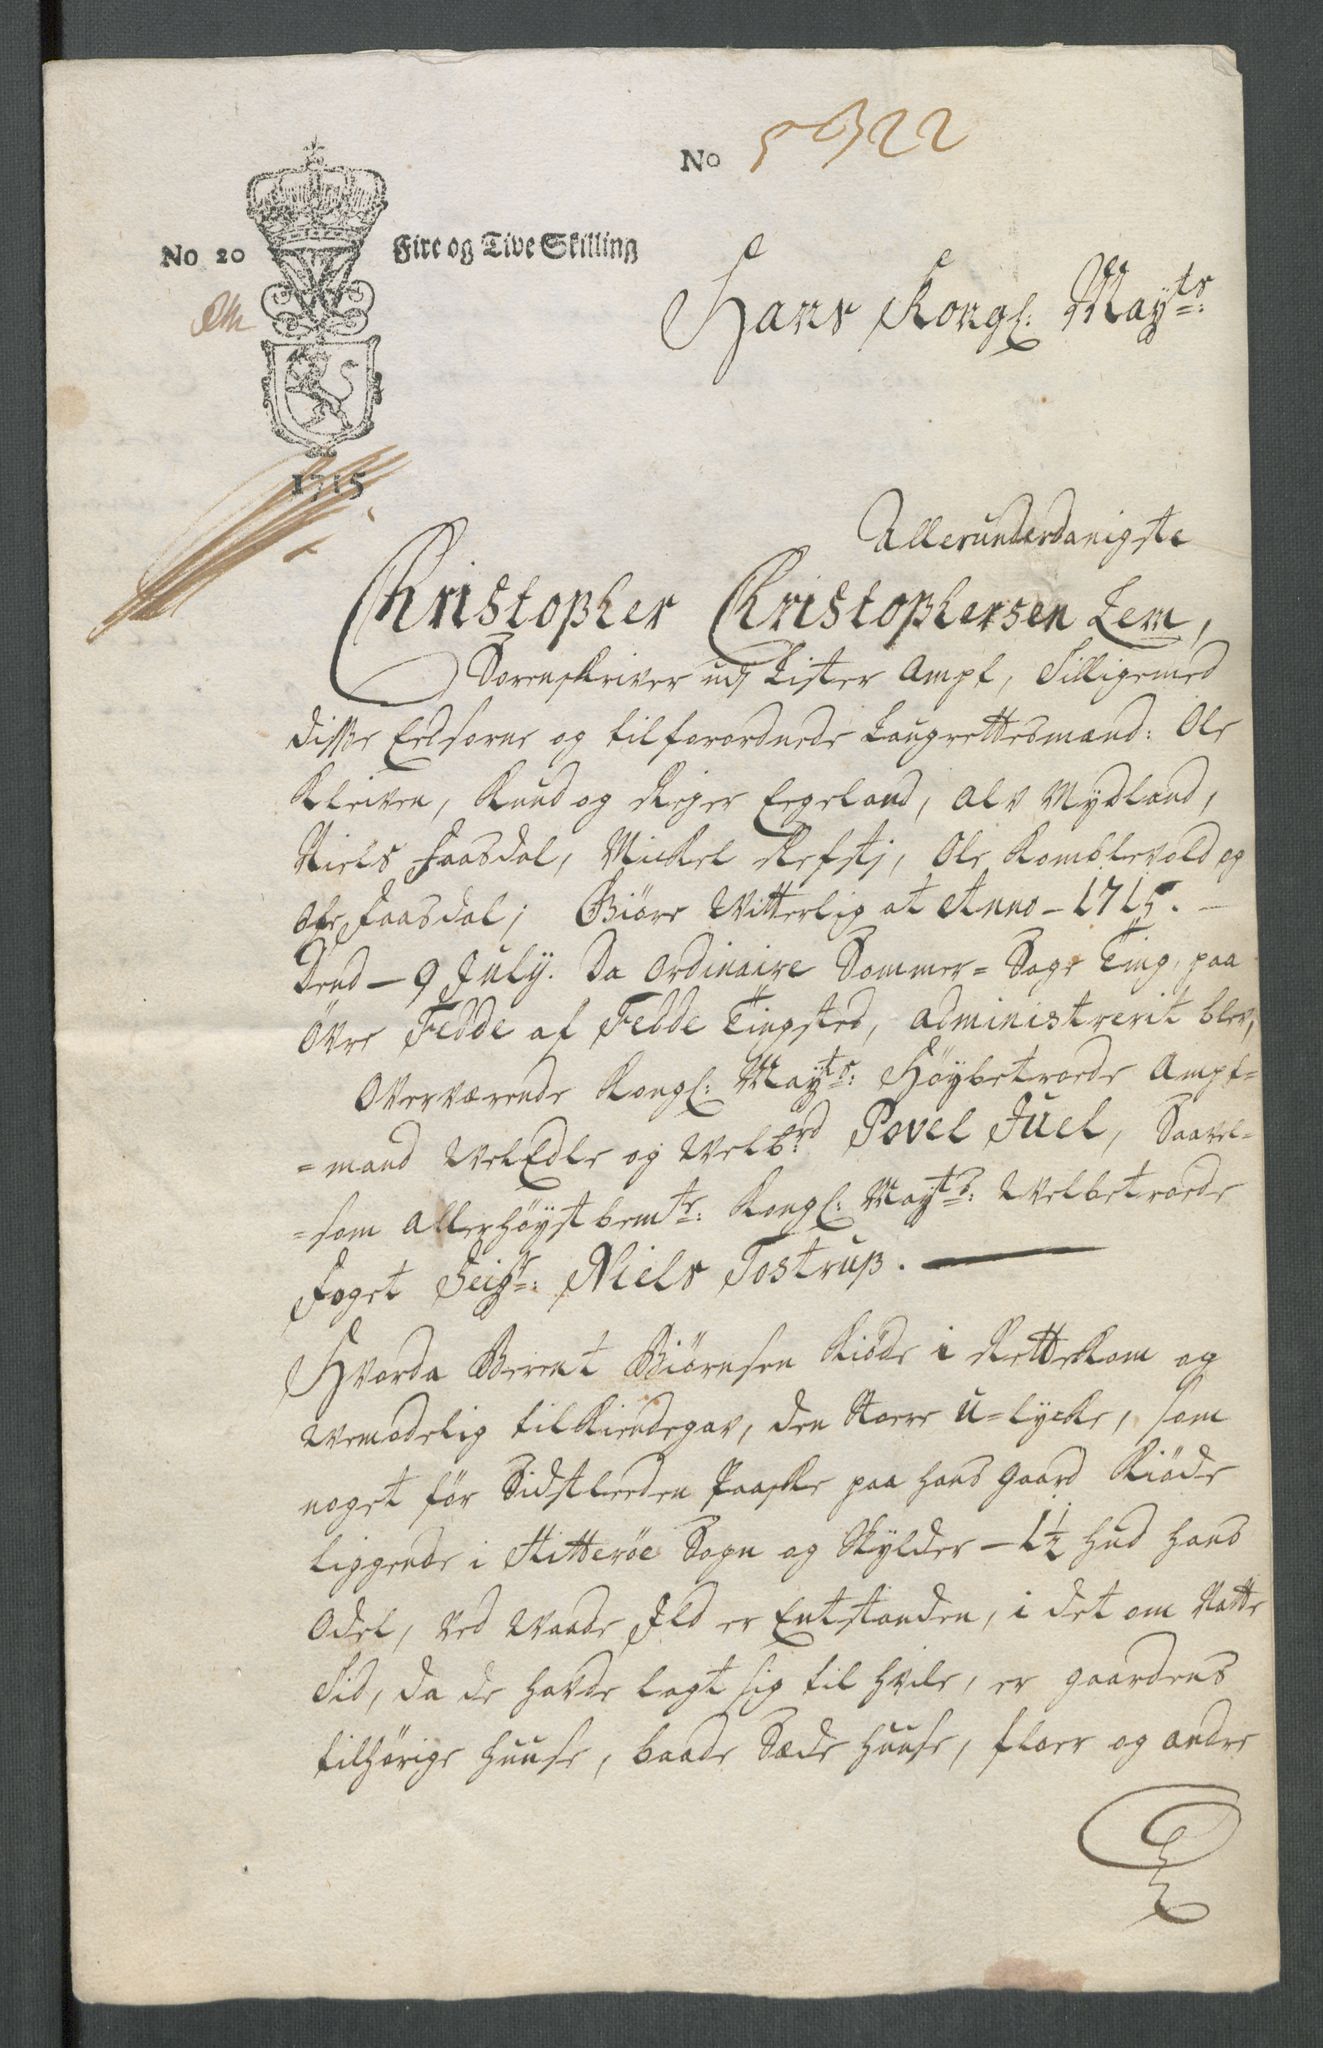 No 5322
No 20 Fire og Tive Skilling
1715
Hans Kongl: Mayts:
Allerunderdanigste
Christopher Christophersen Lem,
Sorenskriver udj Lister Ampt, Tilligemed
disse Eedsorne og tilforordnede Laugrettesmænd: Ole
Kleiven, Knud og Reger Eegeland, Alv Mydland,
Niels Faasdal, Mickel Refstj, Ole Komblevold og
Ole Faasdal; Giøre Witterlig at Anno - 1715. -
Dend - 9 July. Da Ordinaire Sommer= Sage Ting, paa
Øvre Fedde af Fedde Tingsted, administrerit blev,
Overværende Kongl: Mayts: Høybetroede Ampt=
=mand WelEdle og Welbrd Povel Juel, Saavel=
=som allerhøystbemte: Kongl: Mayts: Welbetroede
Foget Seigr: Niels Tostrup.
Hvorda Berent Biørnsen Kiöde i Rette kom og
Wemodelig tilkiendegav, den Store U=lycke, som
noget før Sidstleeden Paaske paa hans gaard Kiöde
liggende i Hitteröe Sogn og Skylder - 1½ hud hans
Odel, ved Waade Jld er Entstanden, i det om Natte
Tid, da de havde lagt sig til hvile, er gaardens
tilhørige huuse, baade Sæde huuse, floer og andre